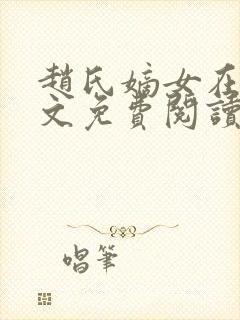 趙氏嫡女在
文免費閱讀
唱筆